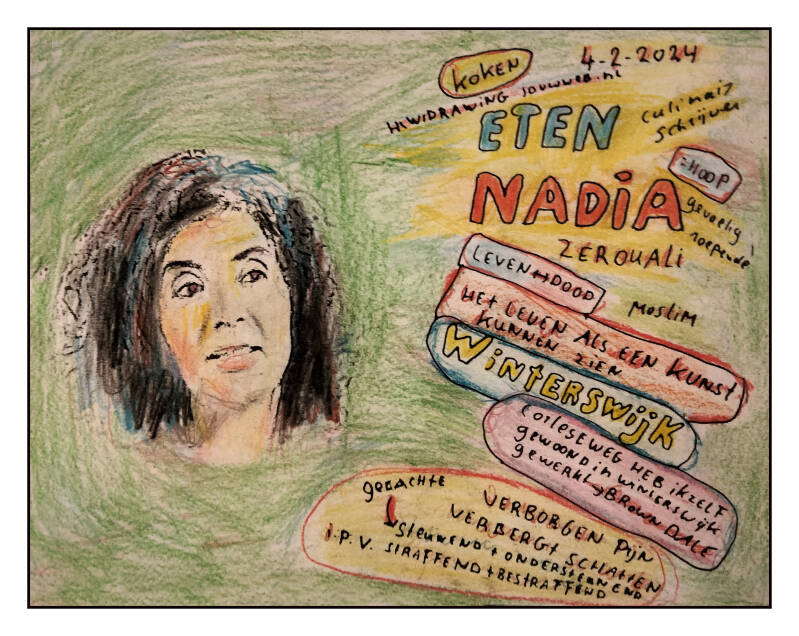 KOKEN
4-2-2024
HWIDRAWING JOUWWEB.nl
ETEN
culinair
schrijver
NADIA
=HOOP
gevoelig!
roepende
ZEROUALI
LEVEN↔DOOD
MOSLIM
HET LEVEN ALS EEN KUNST
KUNNEN ZIEN
WINTERSWIJK
CORLESEWEG HEB IKZELF
gEWOOND IN WINTERSWIJK
gEWERKT → BROWN DALE
gEDACHTE
VERBORGEN PIJN
VERBERGT SCHATTEN
STEUNEND + ONDERSTEUNEND
I.P.V. STRAFFEND + BESTRAFFEND